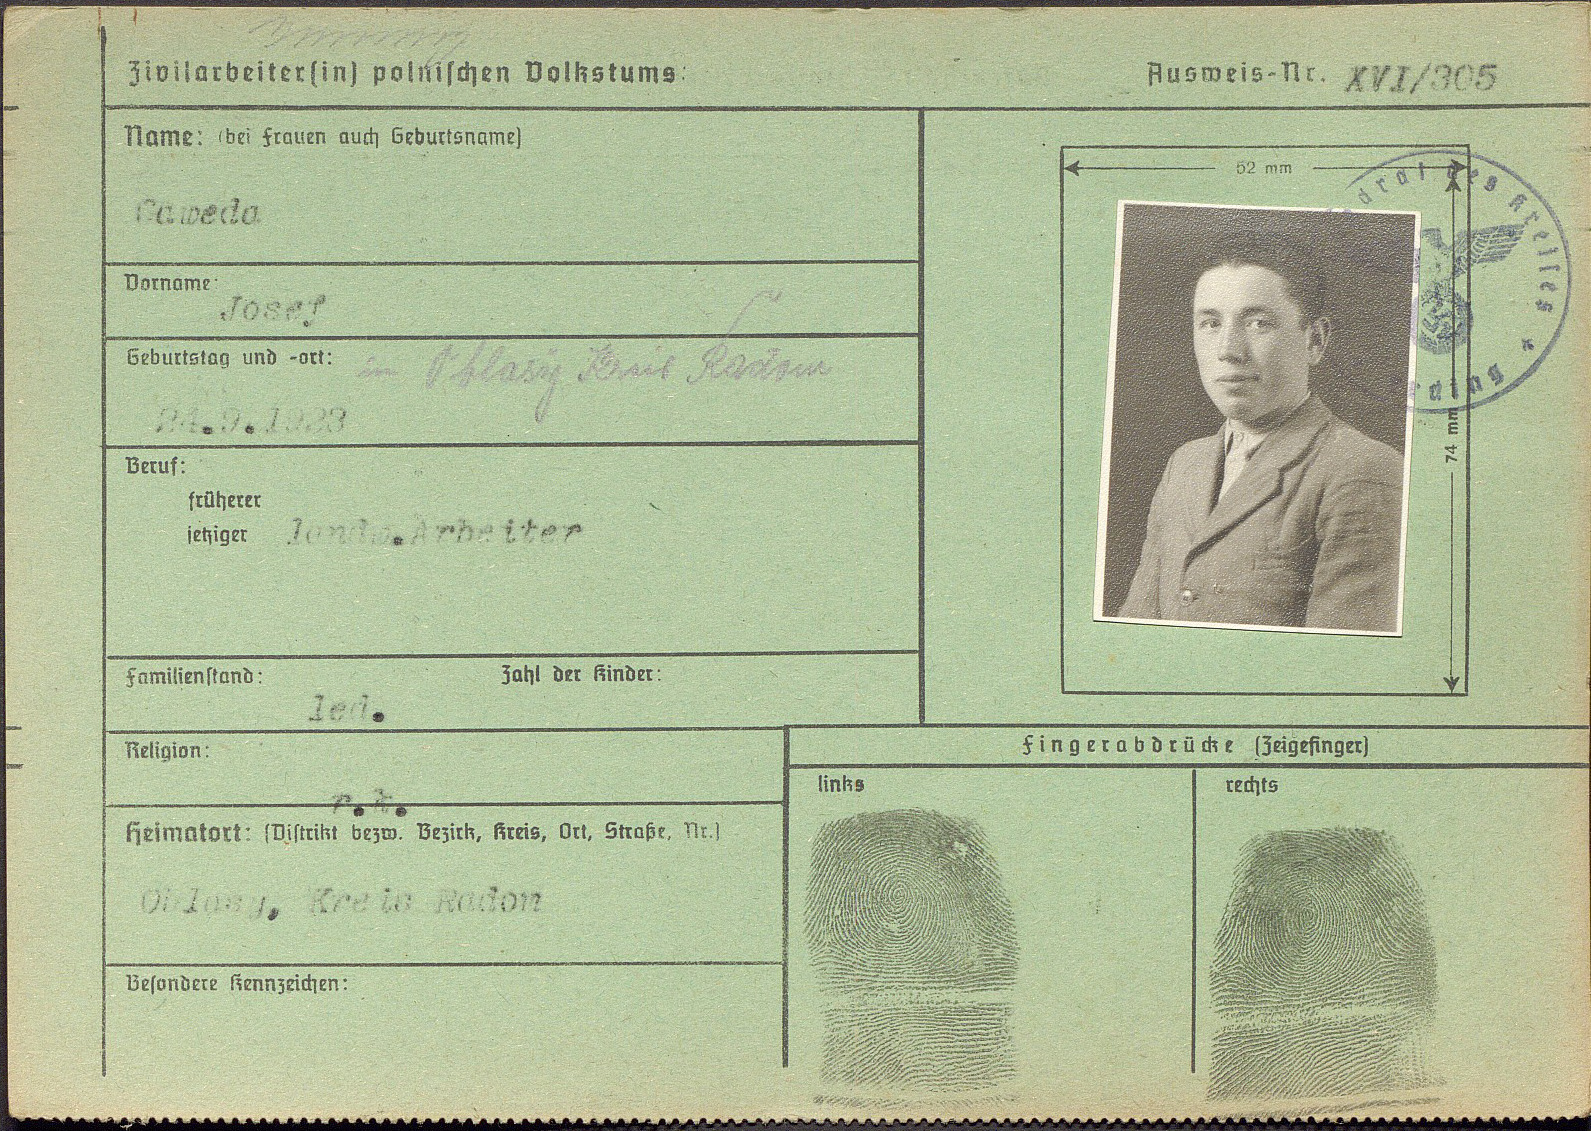 Zivilarbeiter(in) polnischen Volkstums:
Ausweis-Nr. XVI/305
Name: (bei Frauen auch Geburtsname)
Gaweda
Vorname:
Josef
Geburtstag und -ort:
in Oblasy Kreis Radom
24.9.1923
Beruf:
früherer
jetziger landw.Arbeiter
Familienstand: Zahl der Kinder:
led.
Religion:
r.k.
Heimatort: (Distrikt bezw. Bezirk, Kreis, Ort, Straße, Nr.)
Oblasy, Kreis Radon
Besondere Kennzeichen:
52 mm
74 mm
drat des Kreises
rding
Fingerabdrücke (Zeigefinger)
links
rechts